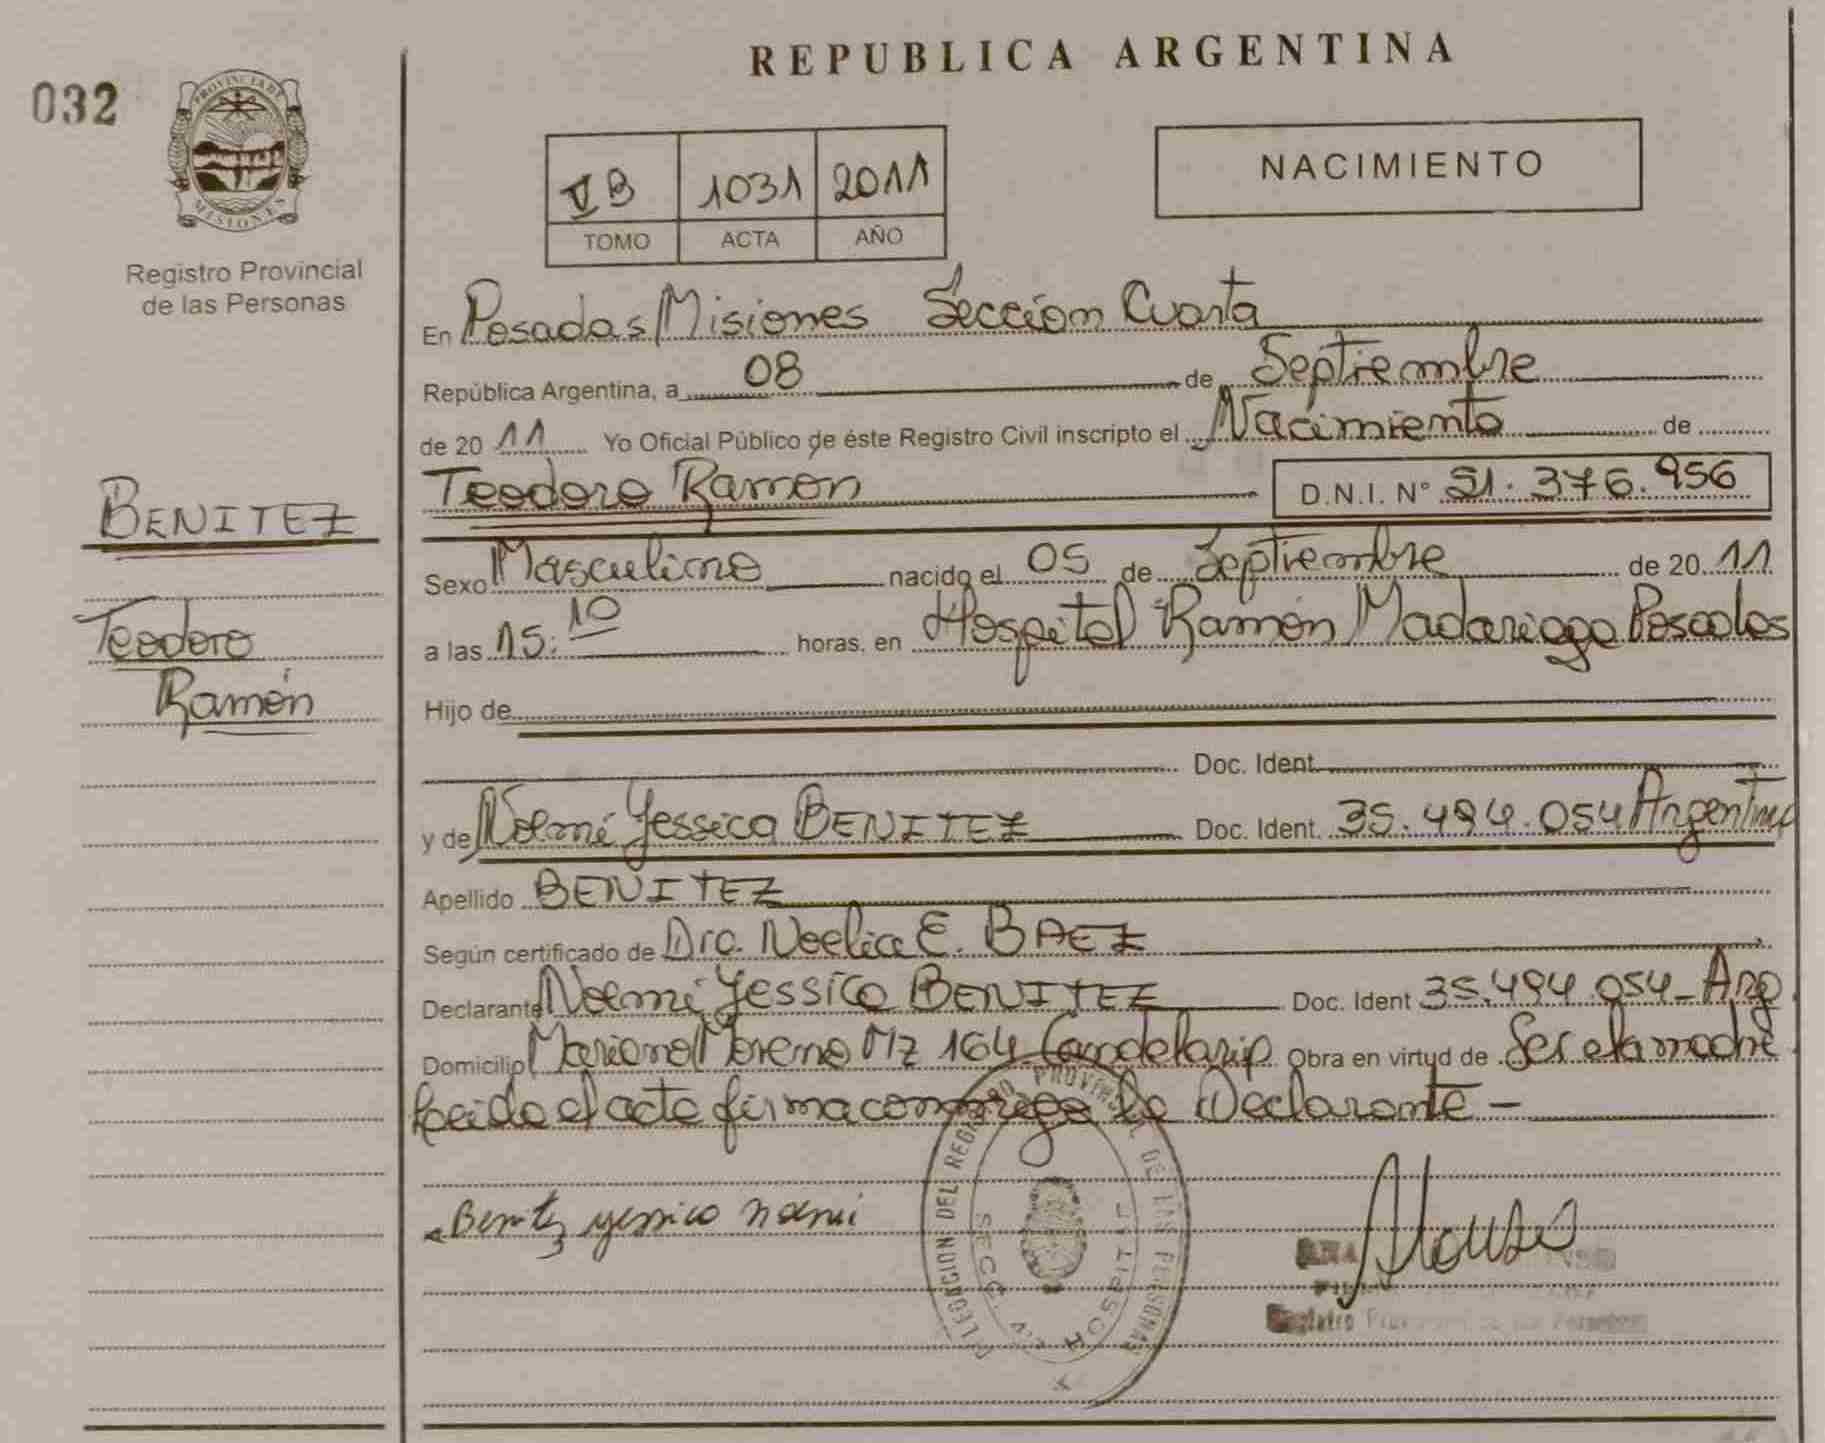 REPUBLICA ARGENTINA
032
PROVINCIA DE
MISIONES
Registro Provincial
de las Personas
VB 1031 2011
TOMO ACTA AÑO
NACIMIENTO
En Posadas Misiones Sección Cuarta
República Argentina, a 08 de Septiembre
de 2011 Yo Oficial Público de éste Registro Civil inscripto el Nacimiento de
BENITEZ
Teodoro Ramón
Teodoro Ramon D.N.I. N° 51.376.956
Sexo Masculino nacido el 05 de Septiembre de 2011
a las 15:10 horas, en Hospital Ramón Madariaga Posadas
Hijo de
Doc. Ident.
y de Noemi Yessica BENITEZ Doc. Ident. 35.494.054 Argentina
Apellido BENITEZ
Según certificado de Dra. Noelia E. BAEZ
Declarante Noemi Yessica BENITEZ Doc. Ident 35.494.054_Arg.
Domicilio Mariano Moreno Mz 164 Candelaria Obra en virtud de Ser la madre
Leida el acta firma conmigo la Declarante -
Benitez yessica noemi
DEL REGISTRO PROVINCIAL DE LAS PERSONAS
SECC. HOSPITAL
ANA
Registro